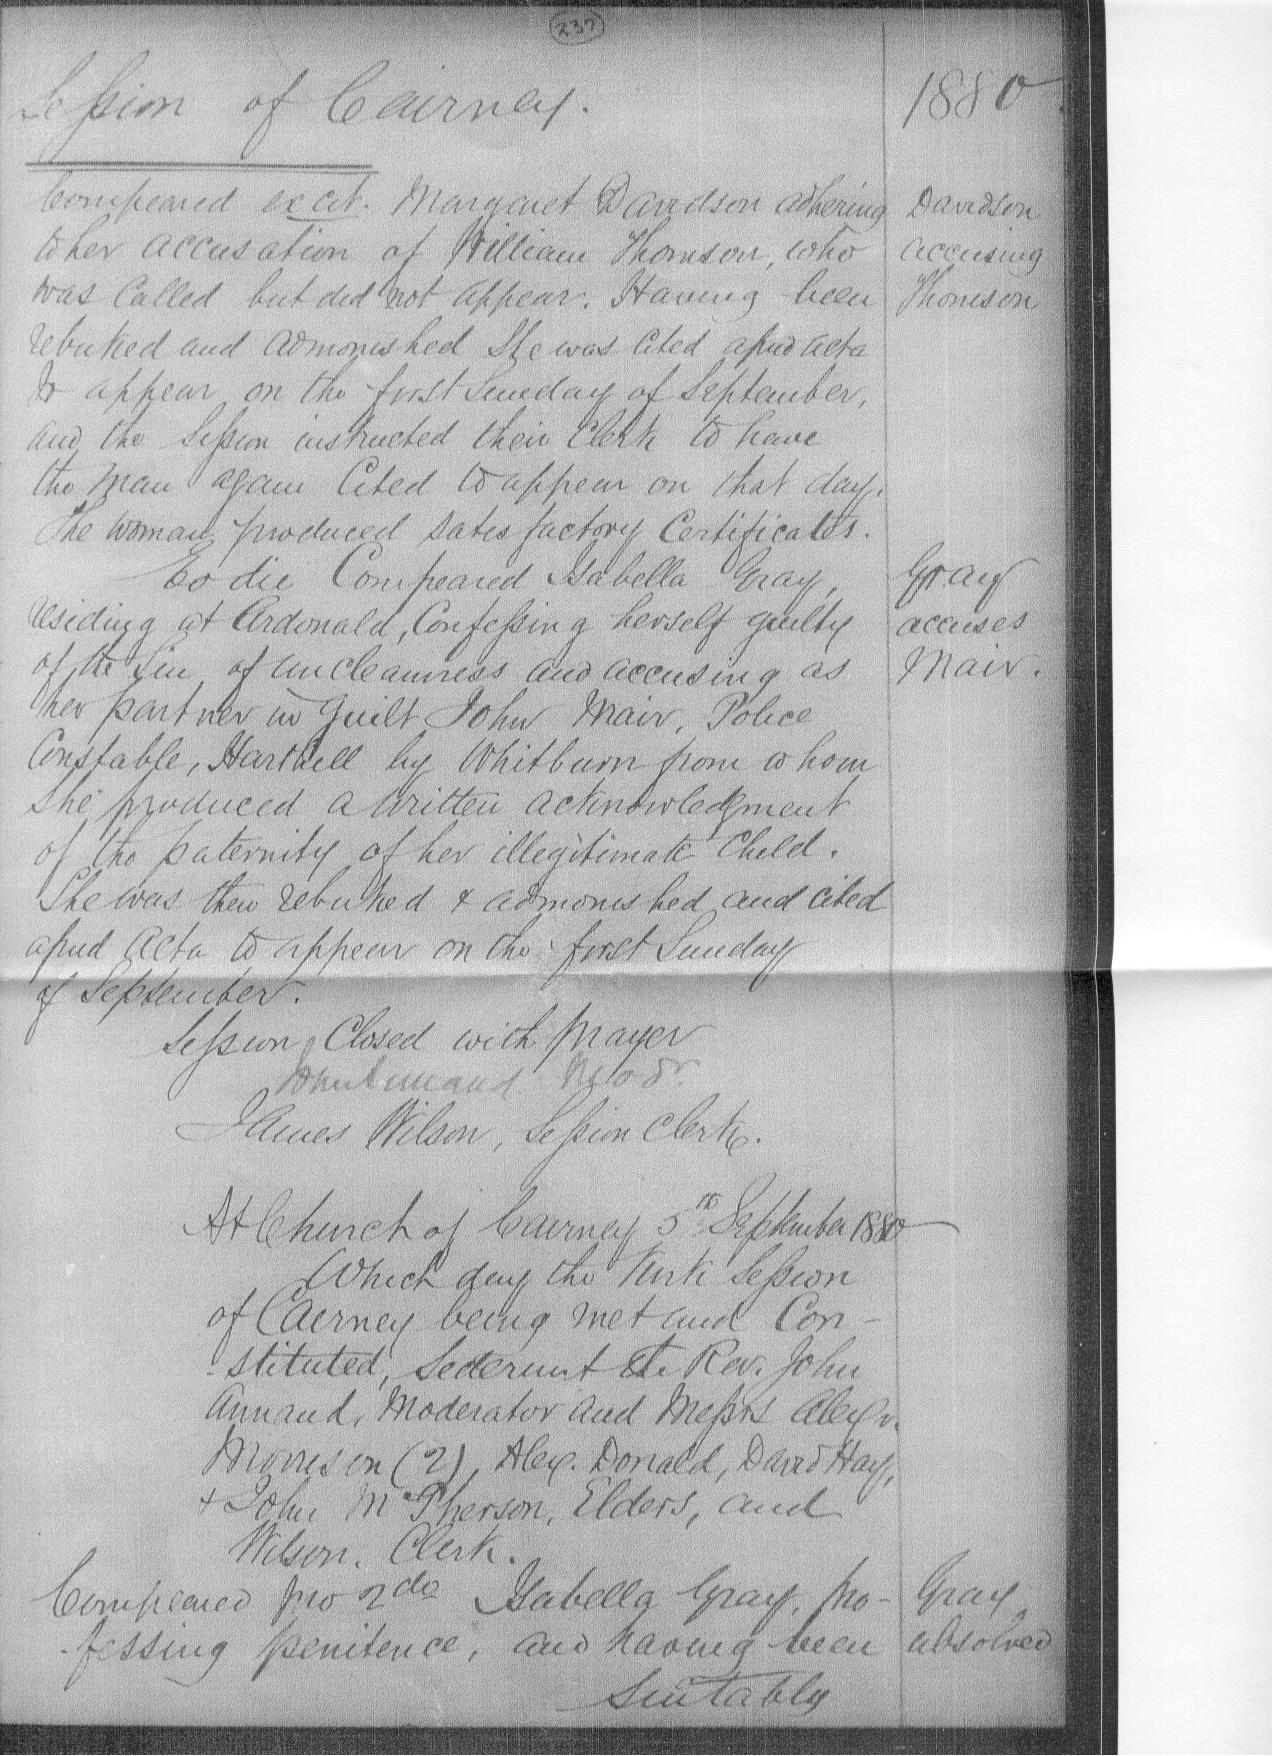 237
Session of Cairney. 1880.
Compeared ex cit. Margaret Davidson adhering
to her accusation of William Thomson, who
was Called but did not appear. Having been
rebuked and admonished She was cited apud acta
to appear on the first Sunday of September,
and the Session instructed their Clerk to have
the man again Cited to appear on that day.
The woman produced satisfactory Certificates.
Davidson
accusing
Thomson
Eo die Compeared Isabella Gray,
residing at Ardonald, Confessing herself guilty
of the Sin of uncleanness and accusing as
her partner in guilt John Mair, Police
Constable, Harthill by Whitburn from whom
She produced a written acknowledgment
of the paternity of her illegitimate Child.
She was then rebuked & admonished and cited
apud Acta to appear on the first Sunday
of September.
Gray
accuses
Mair.
Session Closed with prayer
John Annand Modr.
James Wilson, Session Clerk.
At Church of Cairney 5th September 1880
Which day the Kirk Session
of Cairney being met and Con-
-stituted, Sederunt The Rev. John
Annand, Moderator and Messrs Alexr.
Morrison (2), Alex. Donald, David Hay,
& John McPherson, Elders, and
Wilson, Clerk.
Compeared pro 2do Isabella Gray, pro-
-fessing penitence, and having been
Suitably
Gray
absolved